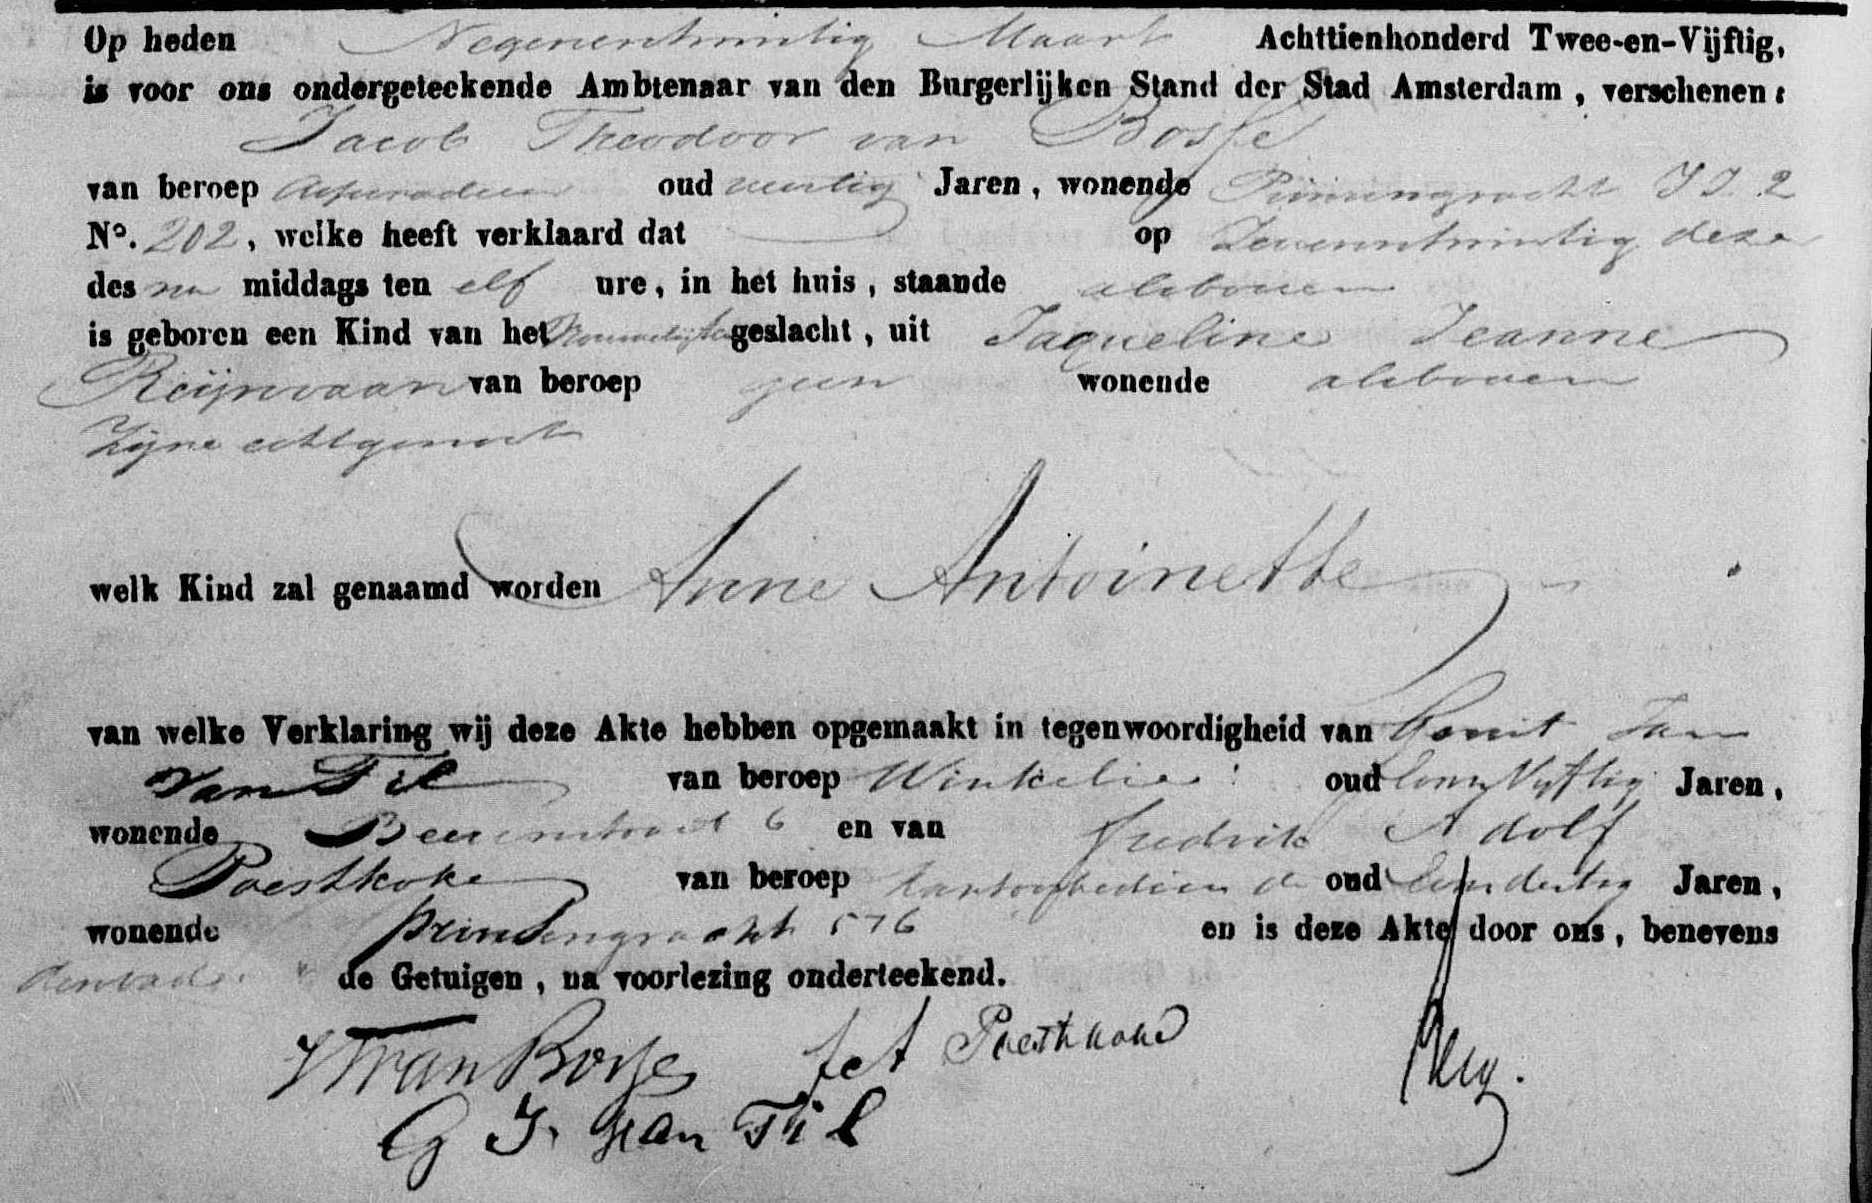 Op heden Negenentwintig Maart Achttienhonderd Twee-en-Vijftig,
is voor ons ondergeteekende Ambtenaar van den Burgerlijken Stand der Stad Amsterdam, verschenen:
Jacob Theodoor van Bosse
van beroep Assuradeur oud veertig Jaren, wonende Prinsengracht J J 2
No. 202, welke heeft verklaard dat op Zevenentwintig dezer
des na middags ten elf ure, in het huis, staande alsboven
is geboren een Kind van het Vrouwelijke geslacht, uit Jaqueline Jeanne
Reijnvaan van beroep geen wonende alsboven
Zijne echtgenoot
welk Kind zal genaamd worden Anne Antoinette
van welke Verklaring wij deze Akte hebben opgemaakt in tegenwoordigheid van Gerrit Jan
van Til van beroep Winkelier oud Eenen Vijftig Jaren,
wonende Beerenstraat 6 en van Fredrik Adolf
Poestkoke van beroep kantoorbediende oud Eenendertig Jaren,
wonende prinsengracht 576 en is deze Akte door ons, benevens
den vader de Getuigen, na voorlezing onderteekend.
JT van Bosse fet Poestkoke Berg.
G J. van Til